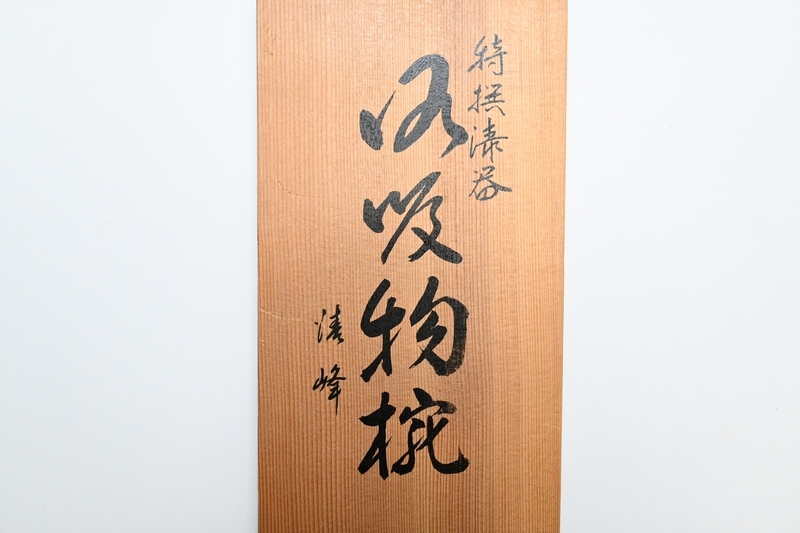 特撰漆器
吸物椀
峰